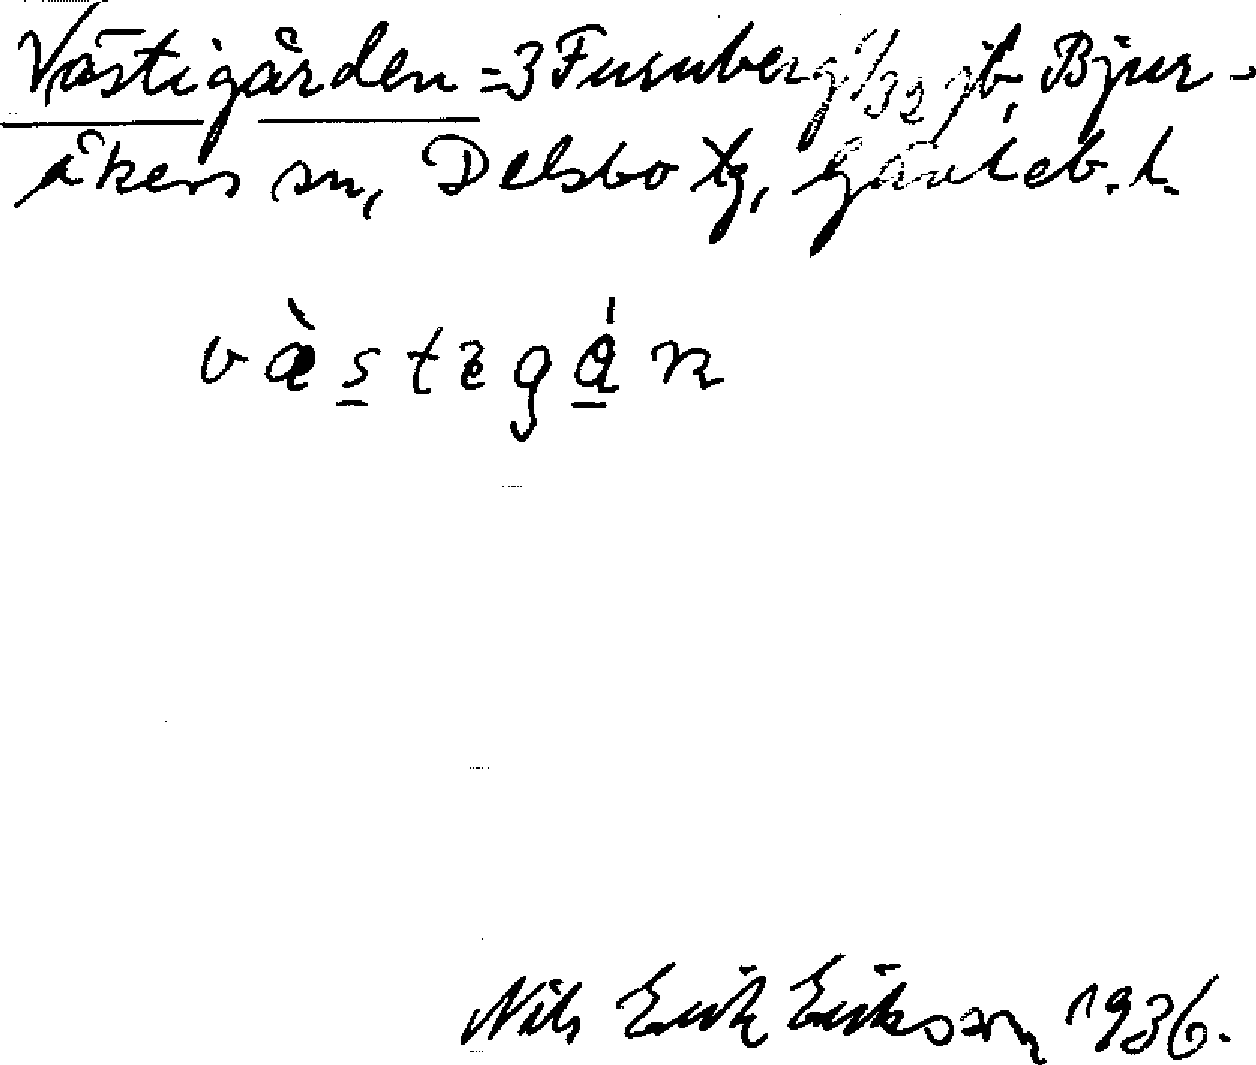 Västigården = 3 Furuberg 1/32 jb, Bjur-
åkers sn, Delsbo tg, Gävleb. l.
væ̀stegán
Nils Erik Erikson 1936.